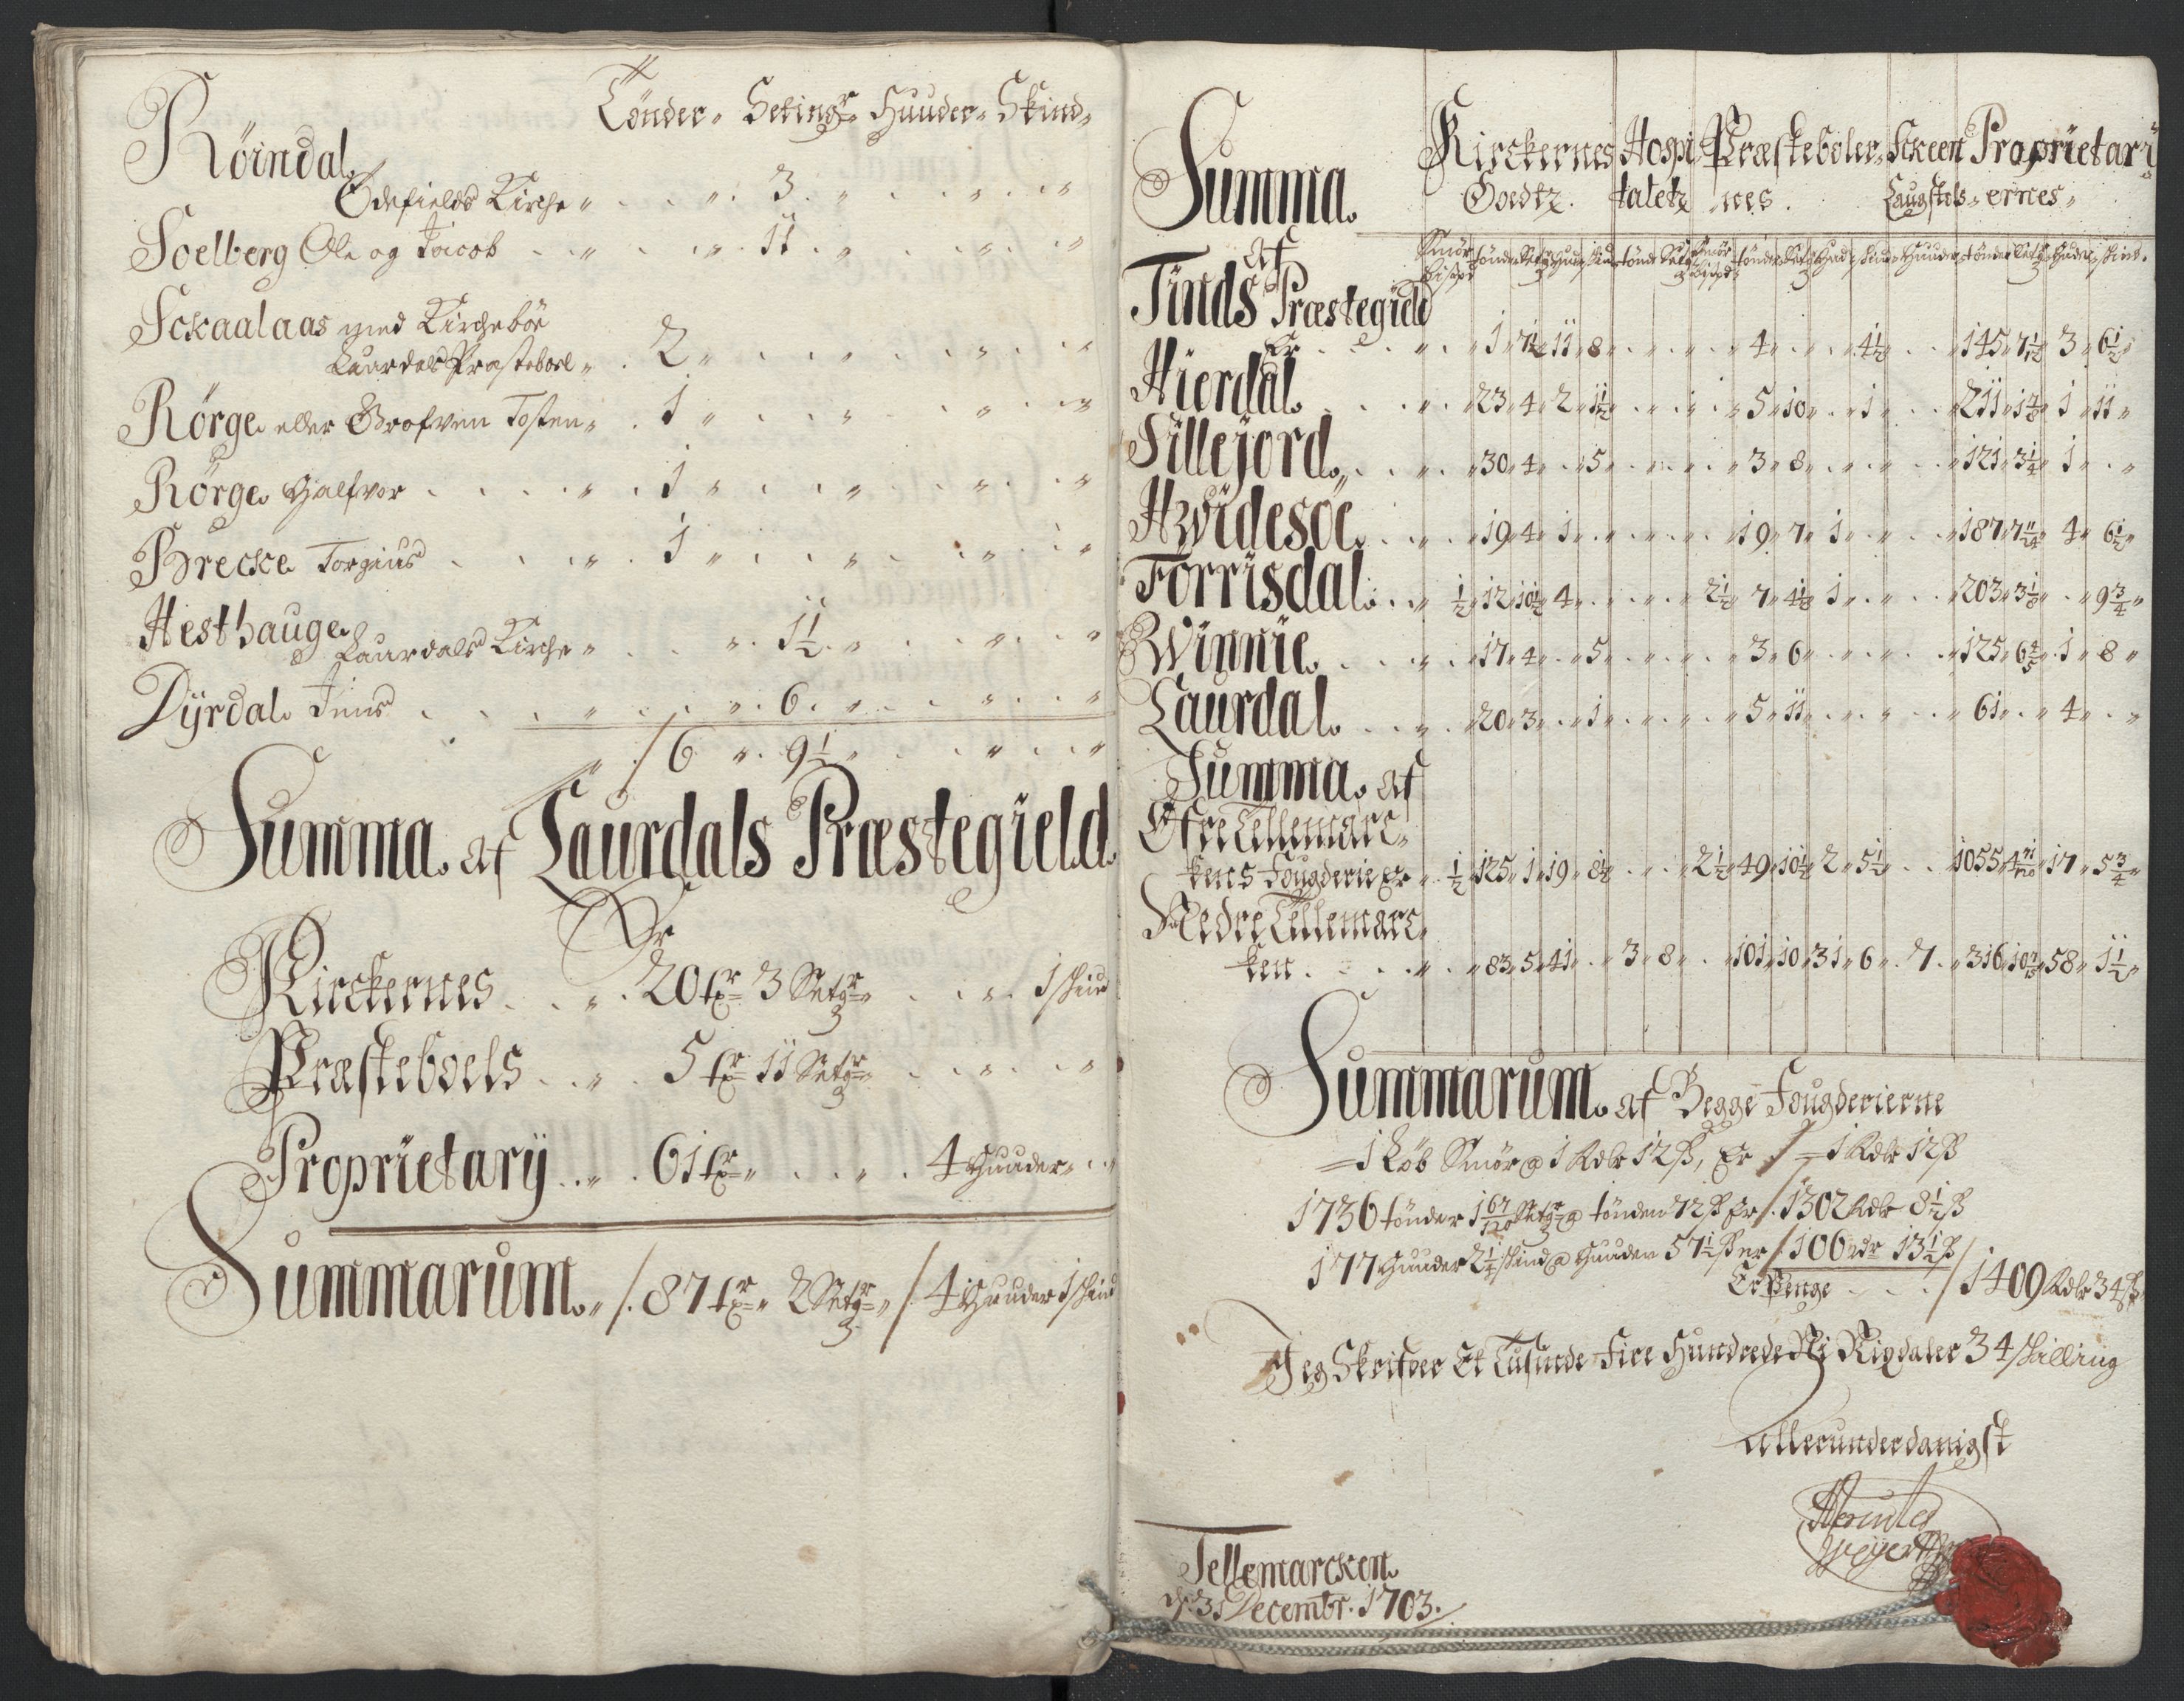 Tönder„ Setingr„ Huuder„ Skind„
Röindal.
Ödefields Kirche „ . . „ . 3 . „ . . „ . . „
Soelberg Ole og Jacob . . „ . . „ . 11 . „ . . „ . . „
Sckaalaas med Kircheböe
Laurdals Præsteboel „ . 2 „ . . „ . . „ . . „
Rörge eller Grofven Tosten „ . 1 „ . . „ . . „ . . „
Rörge Halfvor . . . . „ . 1 „ . . „ . . „ . . „
Brecke Torgius . . . „ . 1 „ . . „ . . „ . . „
Hesthauge
Laurdals Kirche „ . . „ . 1½ . „ . . „ . . „
Dyrdal. Jens . . . „ . . „ . 6 . „ . . „ . . „
„ /6 „ . 9½ „ . . „ . . „
Summa. af Laurdals Præstegield
Er
Kirckernes . . „ . 20 tr 3 Setgr „ . . „ . 1 skind
Præsteboels . . „ . 5 tr 11 Setgr „ . . „ . . „
Proprietarij . . „ . 61 tr „ . . „ . 4 Huuder „ . .
Summarum. „ /. 87 tr „ 2 Setgr „ /. 4 Huuder 1 skind
Summa. Kirckernes Hospi Præsteboler Sckeen Proprietari
Goedtz. taletz nes. Laugstols „ ernes „
af
Tinds Præstegield
Er . . . „ . „ 1 „ 7½ „ 11 „ 8 „ . . „ . „ 4 „ . . „ . 4½ „ . . „ 145 „ 7 1/12 „ 3 „ 6½ „
Hierdal. . . . „ . „ 23 „ 4 „ 2 „ 1½ „ . . „ . „ 5 „ 10 „ . „ 1 „ . . „ 211 „ 1¾ „ 1 „ 11 „
Sillejord. „ . . „ . „ 30 „ 4 „ . „ 5 „ . . „ . „ 3 „ 8 „ . . „ . . „ 121 „ 3¼ „ 1 „ . „
Hwidesöe. . . „ . „ 19 „ 4 „ 1 „ . . „ . . „ 19 „ 7 „ 1 „ . . „ . „ 187 „ 7 11/24 „ 4 „ 6½ „
Törrisdal. . „ ½ „ 12 „ 10½ „ 4 „ . . „ . „ 2½ „ 7 „ 4½ „ 1 „ . „ . „ 203 „ 3⅛ „ . „ 9¾ „
Winnie. . . . „ . „ 17 „ 4 „ . „ 5 „ . . „ . „ 3 „ 6 „ . . „ . . „ 125 „ 6⅘ „ 1 „ 8 „
Laurdal. . . . „ . „ 20 „ 3 „ . „ 1 „ . . „ . „ 5 „ 11 „ . . „ . . „ 61 „ . „ 4 „ . „
Summa. af
Öfre Tellemarc-
kens Fougderie Er „ ½ „ 125 „ 1 „ 19 „ 8½ „ . . „ 2½ „ 49 „ 10½ „ 2 „ 5½ „ . . „ 1055 „ 4 71/120 „ 17 „ 5¾ „
Nedre Tellemarc-
ken . . . . „ . „ 83 „ 5 „ 41 „ . „ 3 „ 8 „ . „ 101 „ 10 „ 31 „ 6 „ . 7 „ . „ 316 „ 10 „ 58 „ 1½ „
Summarum. af Begge Fougderierne
1 Löb Smör @ 1 Rdlr 12 ß, Er /. 1 Rdlr 12 ß
1736 tönder 1 67/120 Setgr @ tönden 72 ß Er /. 1302 Rdlr 8½ ß
177 Huuder 2¼ skind @ Huuden 57½ ß er /. 106 rdr 13½ ß
Er Penge . . . /1409 Rdlr 34 ß
Jeg Skrifver Et Tusinde Fire Hundrede Ni Rixdaler 34 skilling
Allerunderdanigst
Tellemarcken.
d. 31 Decembr. 1703.